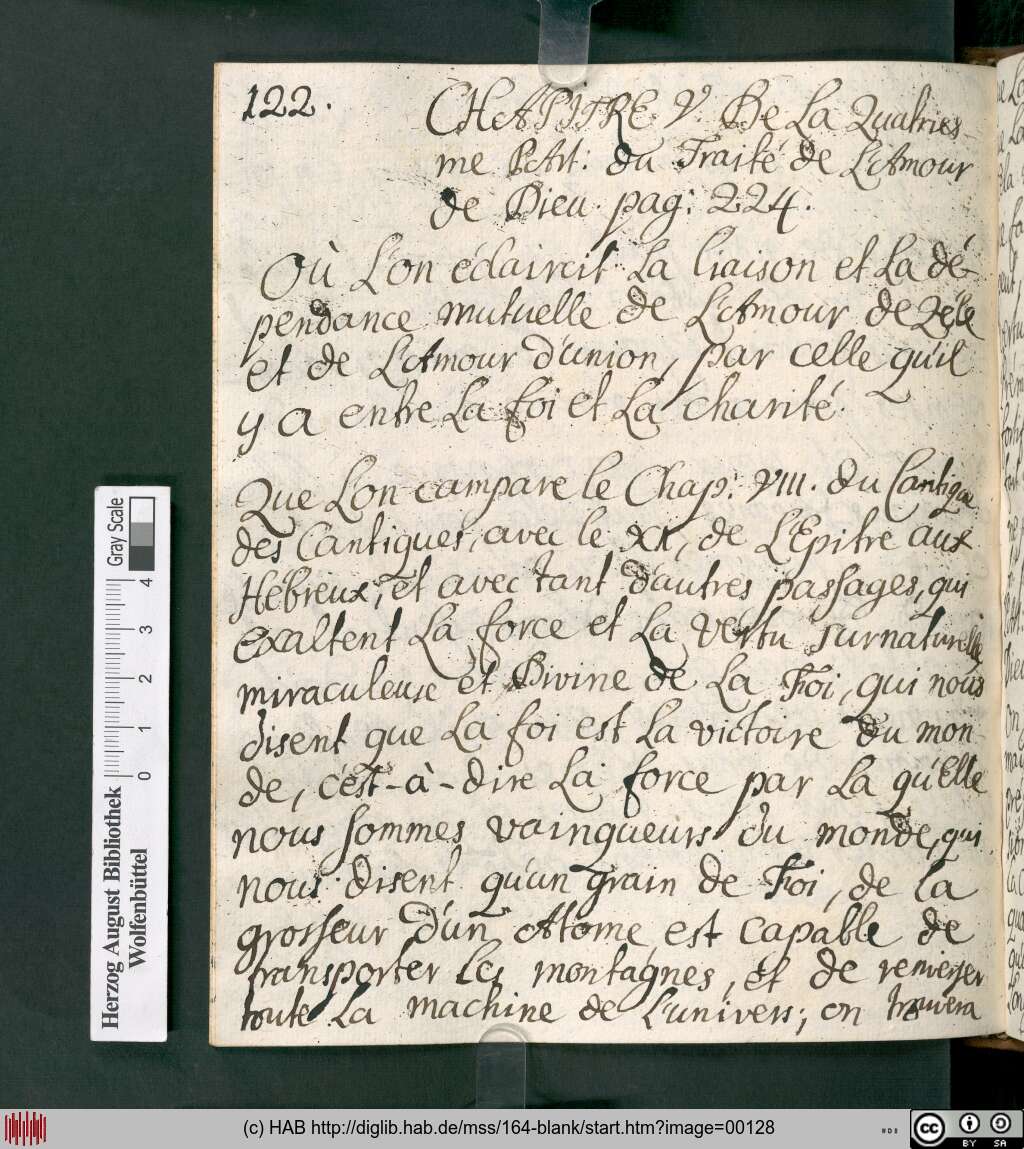 122.
CHAPITRE V. De La Quatries-
me PArt: du Traité de L'Amour
de Dieu. pag: 224.
Où L'on éclaircit La liaison et La dé-
pendance mutuelle de L'Amour de Zéle
et de L'Amour d'union, par celle qu'il
y a entre La foi et La charité.
Que L'on campare le Chap: VIII. du Cantique
des Cantiques, avec le XI, de L'Epitre aux
Hébreux, et avec tant d'autres passages, qui
exaltent La force et La vertu surnaturelle
miraculeuse et Divine de La Foi, qui nous
disent que La foi est La victoire du mon-
de, c'est-à-dire La force par La qu'Elle
nous sommes vainqueurs du monde, qui
nous disent qu'un grain de Foi, de la
grosseur d'un Atome est capable de
transporter les montagnes, et de renverser
toute La machine de L'univers; on trouvera
Herzog August Bibliothek
Wolfenbüttel
Gray Scale
0 1 2 3 4
(c) HAB http://diglib.hab.de/mss/164-blank/start.htm?image=00128
cc BY SA